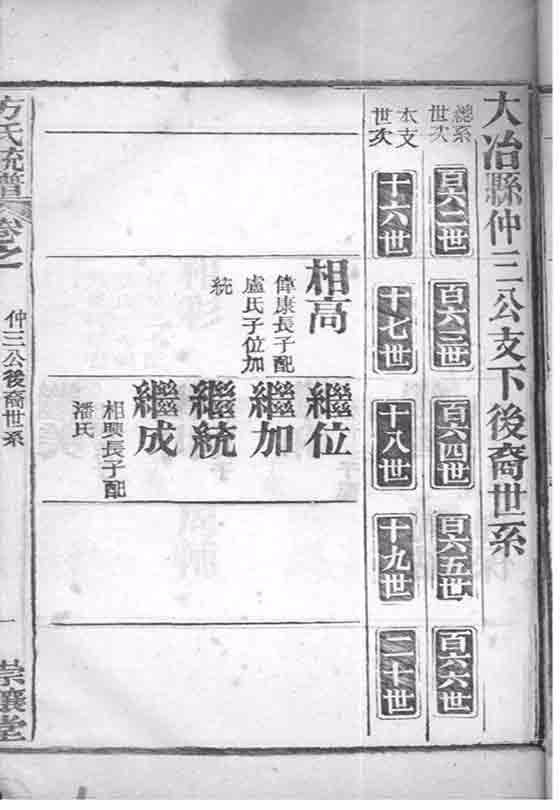 大冶縣仲三公支下後裔世系
總系世次
百六二世
百六三世
百六四世
百六五世
百六六世
本支世次
十六世
十七世
十八世
十九世
二十世
相高
偉康長子配
盧氏子位加
統
繼位
繼加
繼統
繼成
相興長子配
潘氏
方氏統譜
卷之一
仲三公後裔世系
一